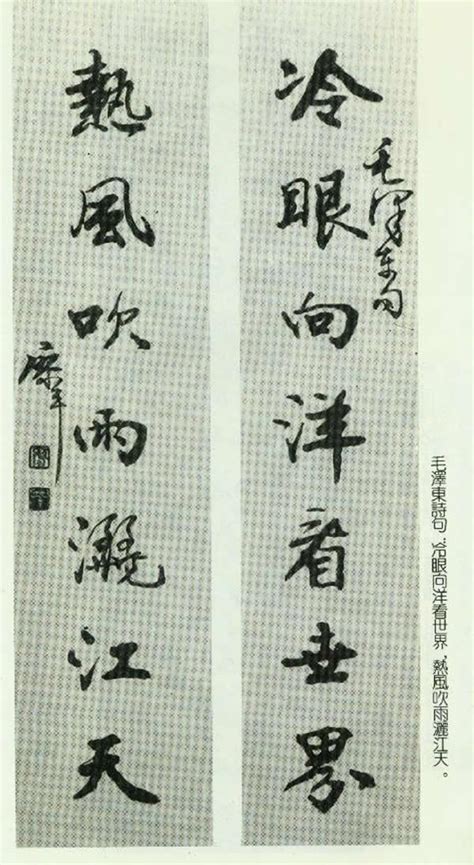 毛澤東詩句：冷眼向洋看世界，熱風吹雨灑江天。
毛澤东句
冷眼向洋看世界
熱風吹雨灑江天